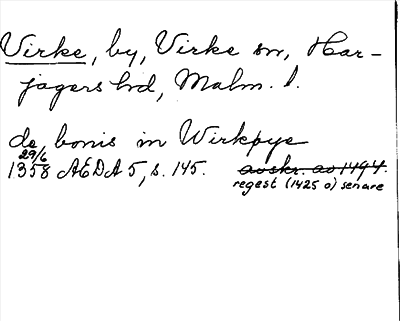 Virke, by, Virke sn, Har-
jagers hd, Malm. l.
de bonis in Wirkpye
29/6
1358 AEDA 5, s. 145. avskr. av 1494.
regest (1425 o) senare